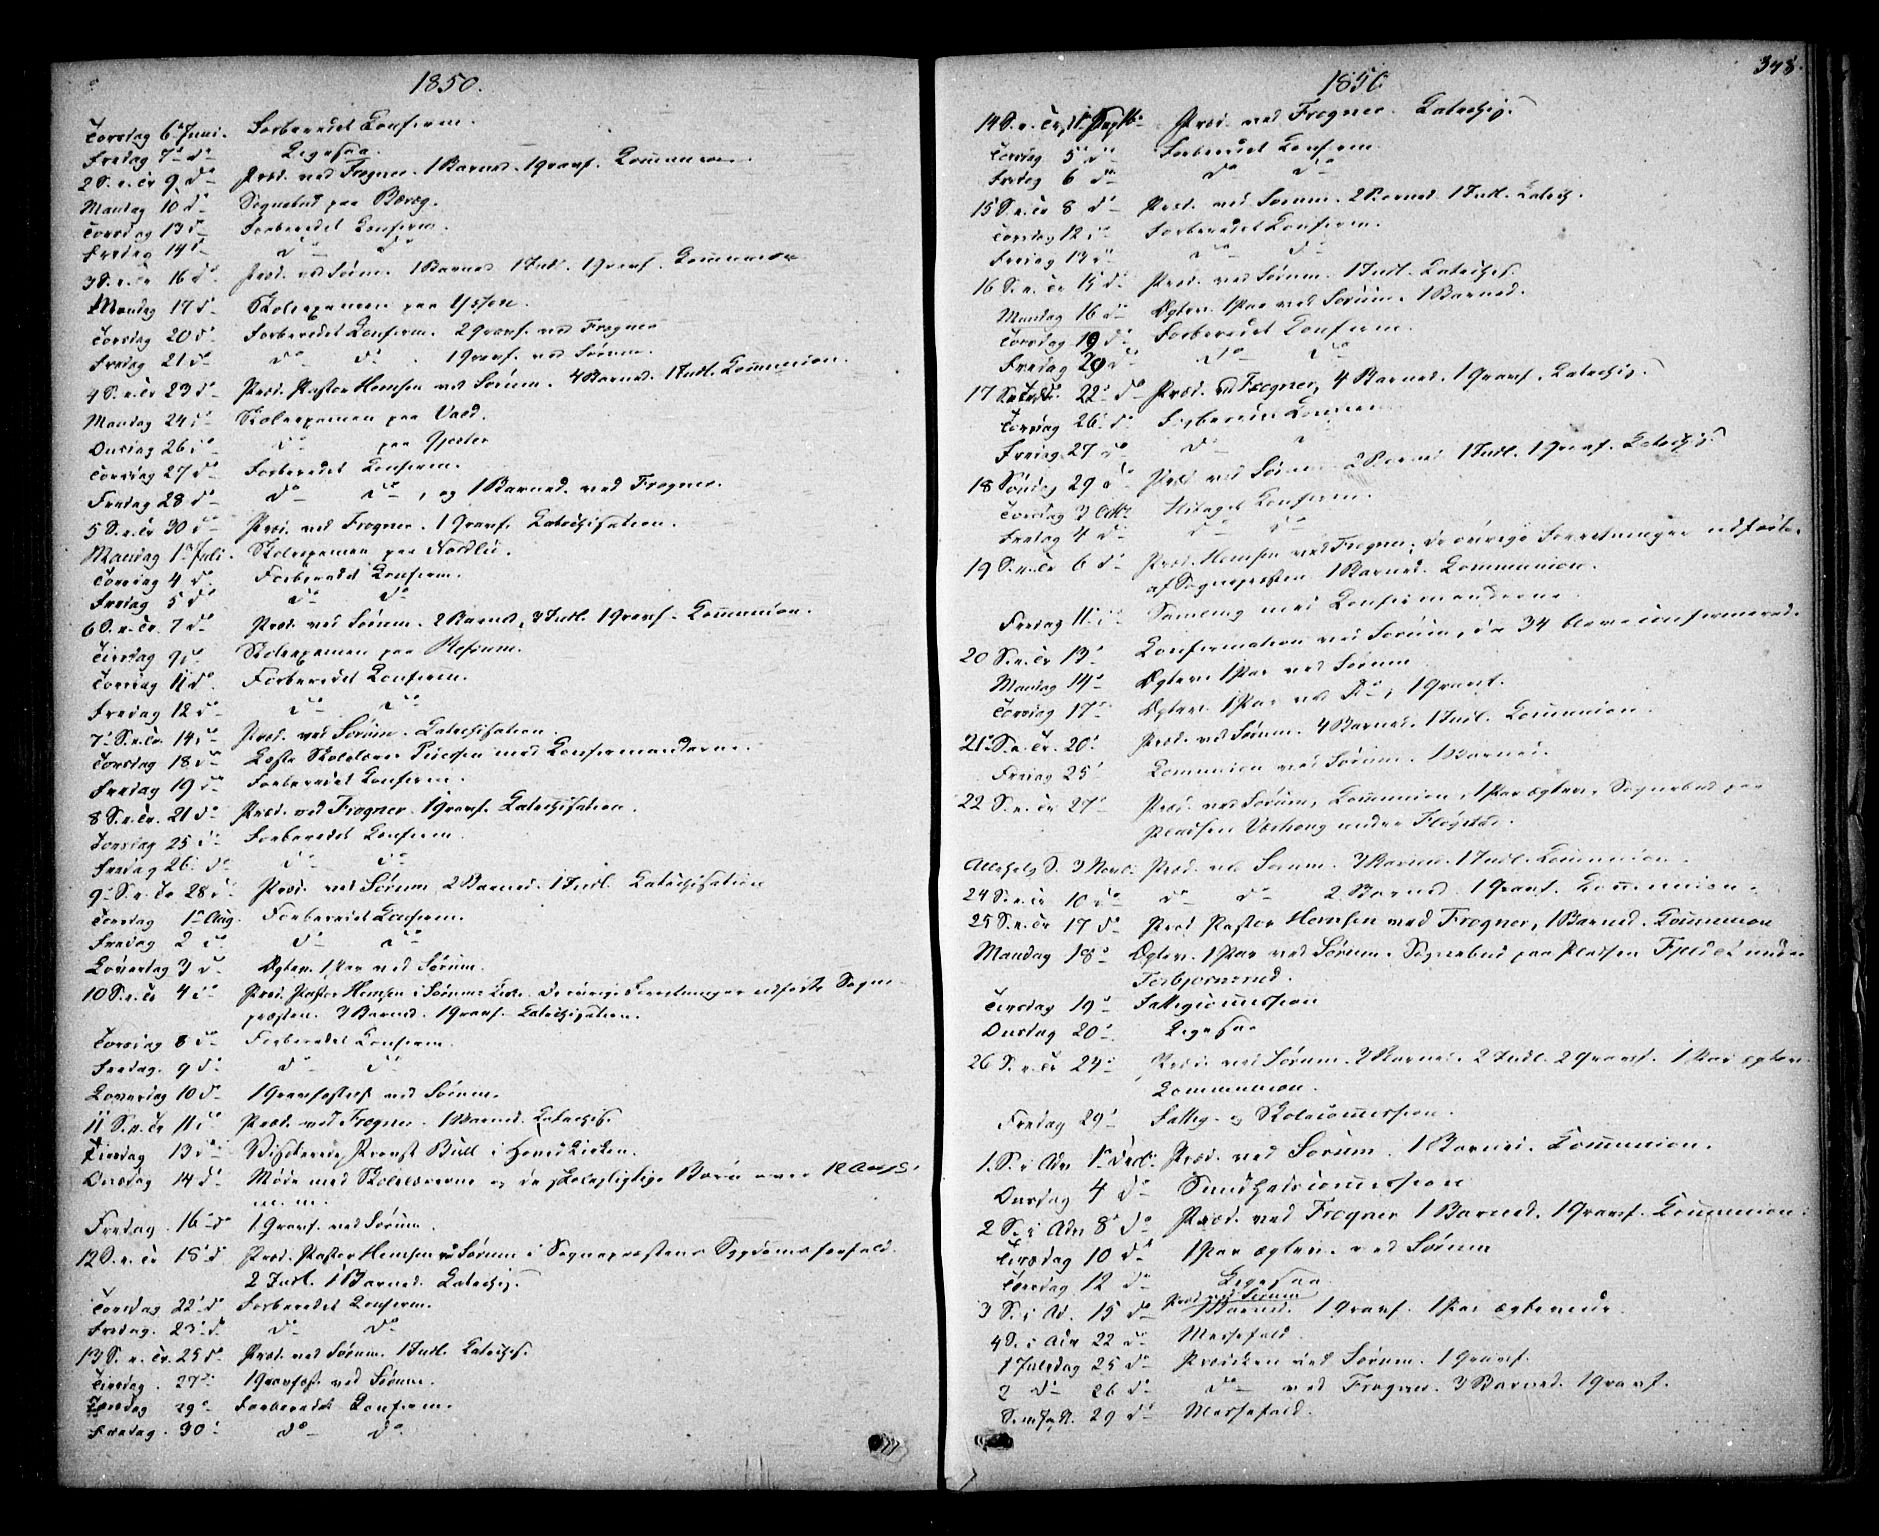 1850.
Torsdag 6 Juni. Forberedet Confirm.
Fredag 7de do Ligesaa.
2 S. e. Tr 9 do Præd. ved Frogner. 1 Barned. 1 Gravf. Communion.
Mandag 10 do Sognebud paa
Torsdag 13 do Forberedet Confirm.
Fredag 14 do do do
3 S. e. Tr 16 do Præd. ved Sørum. 1 Barned. 1 Indl. 1 Gravf. Communion
Mandag 17 do Skoleexamen paa
Torsdag 20 do Forberedet Confirm. 2 Gravf. ved Frogner
Fredag 21 do do do . 1 Gravf. ved Sørum.
4 S. e. Tr 23 do Præd. Pastor Hemsen ved Sørum. 4 Barned. 1 Indl. Communion.
Mandag 24 do Skoleexamen paa Vald.
Onsdag 26 do do paa
Torsdag 27 do Forberedet Confirm.
Fredag 28 do do do, og 1 Barned. ved Frogner.
5 S. e. Tr 30 do Præd. ved Frogner. 1 Gravf. Catechisation.
Mandag 1 Juli. Skoleexamen paa Nordlie.
Torsdag 4 do Forberedet Confirm.
Fredag 5 do do do
6 S. e. Tr. 7 do Præd. ved Sørum. 2 Barned, 3 Indl. 1 Gravf. Communion.
Tirsdag 9 do Skoleexamen paa
Torsdag 11 do Forberedet Confirm.
Fredag 12 do do do
7 S. e. Tr. 14 do Præd. ved Sørum. Catechisation.
Torsdag 18 do Læste Skolelærer med Confirmanderne.
Fredag 19 do Forberedet Confirm.
8 S. e. Tr. 21 do Præd. ved Frogner. 1 Gravf. Catechisation.
Torsdag 25 do Forberedet Confirm.
Fredag 26 do do do
9 S. e. Tr 28 do Præd. ved Sørum 2 Barned. 1 Indl. Catechisation
Torsdag 1 Aug. Forberedet Confirm.
Fredag 2 do do do
Løverdag 3 do Ægtev. 1 Par ved Sørum.
10 S. e. Tr 4 do Præd. Pastor Hemsen i Sørums Kirke. De øvrige Forretninger udførte Sogne-
præsten. 3 Barned. 1 Gravf. Catechisation.
Torsdag 8 do Forberedet Confirm.
Fredag. 9 do do do
Løverdag 10 do 1 Gravfæstelse ved Sørum.
11 S. e. Tr 11 do Præd. ved Frogner. 1 Barned. Catechis.
Tirsdag 13 do Visiterede Provst Bull i Hovedkirken.
Onsdag 14 do Møde med Skolelærerne og de skolepligtige Børn over 12 Aar
m. m.
Fredag. 16 do 1 Gravf. ved Sørum.
12 S. e. Tr 18 do Præd. Pastor Hemsen ved Sørum i Sognepræstens Sygdomsforfald.
2 Indl. 1 Barned. Catechis.
Torsdag 22 do Forberedet Confirm.
Fredag. 23 do do do
13 S. e. Tr. 25 do Præd. ved Sørum. 1 Indl. Catechis.
Tirsdag. 27 do 1 Gravfæst. ved Sørum.
Torsdag 29 do Forberedet Confirm.
Fredag. 30 do do
348.
1850
14 S. e. Tr. 1 Septbr Præd. ved Frogner. Catechis.
Torsdag 5 do Forberedet Confirm.
Fredag 6 do do do
15 S. e. Tr 8 do Præd. ved Sørum. 2 Barned. 1 Indl. Catech.
Torsdag 12 do Forberedet Confirm.
Fredag 13 do do do
16 S. e. Tr 15 do Præd. ved Sørum. 1 Indl. Catechis.
Mandag 16 do Ægtev. 1 Par ved Sørum. 1 Barned.
Torsdag 19 do Forberedet Confirm.
Fredag 20 do do do
17 S. e. Tr. 22 do Præd. ved Frogner, 4 Barned. 1 Gravf. Catechis.
Torsdag 26 do Forberedet Confirm.
Fredag 27 do do
18 Søndag 29 do Præd. ved Sørum 2 Barned 1 Indl. 1 Gravf. Catechis.
Torsdag 3 Octr Confirm.
Fredag 4 do do do
19 S. e. Tr 6 do Præd. Hemsen ved Frogner; de øvrige Forretninger udførte
af Sognepræsten 1 Barned. Communion.
Fredag 11 do Samling med Confirmanderne.
20 S. e. Tr 13 do Confirmation ved Sørum, da 34 bleve confirmerede.
Mandag 14 do Ægtev. 1 Par ved Sørum
Torsdag 17 do Ægtev. 1 Par ved do, 1 Gravf.
21 S. e. Tr. 20 do Præd. ved Sørum. 4 Barned. 1 Indl. Communion.
Fredag 25 do Communion ved Sørum. 1 Barned.
22 S. e. Tr 27 do Præd. ved Sørum, Communion, 1 Par ægtev. Sognebud paa
Pladsen under
Allehelg S. 3 Novbr. Præd. ved Sørum. 3 Barned. 1 Indl. Communion.
24 S. e. Tr 10 do do do 2 Barned. 1 Gravf. Communion.
25 S. e. Tr 17 do Præd. Pastor Hemsen ved Frogner, 1 Barned. Communion
Mandag 18 do Ægtev. 1 Par ved Sørum. Sognebud paa Pladsen Fjeldet under
Torbjørnsrud.
Tirsdag 19 do Fattigcommission
Onsdag 20 do Ligesaa
26 S. e. Tr 24 do Præd. ved Sørum. 3 Barned. 2 Indl. 2 Gravf. 1 Par ægtev.
Communion.
Fredag 29 do Fattig- og Skolecommission.
1. S. i Adv 1 Decbr. Præd. ved Sørum. 1 Barned. Communion.
Onsdag 4 do Sundhedscommission
2 S. i Adv 8 do Præd. ved Frogner 1 Barned. 1 Gravf. Communion.
Tirsdag 10 do 1 Par ægtev. ved Sørum
Torsdag 12 do Ligesaa
Præd ved Sørum
3 S. i Ad. 15 do 1 Barned. 1 Gravf. 1 Par ægteviede.
4 S. i Adv 22 do Messefald.
1 Juledag 25 do Prædiken ved Sørum. 1 Gravf.
2 do 26 do do ved Frogner. 3 Barned. 1 Gravf.
29 do Messefald.